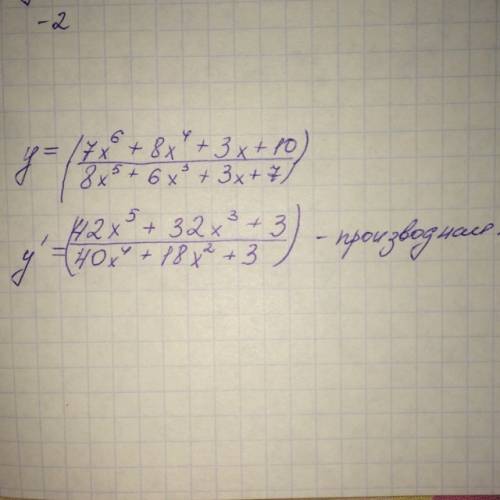 -2
y = (7x⁶ + 8x⁴ + 3x + 10 / 8x⁵ + 6x³ + 3x + 7)
y' = (42x⁵ + 32x³ + 3 / 40x⁴ + 18x² + 3) - производная.